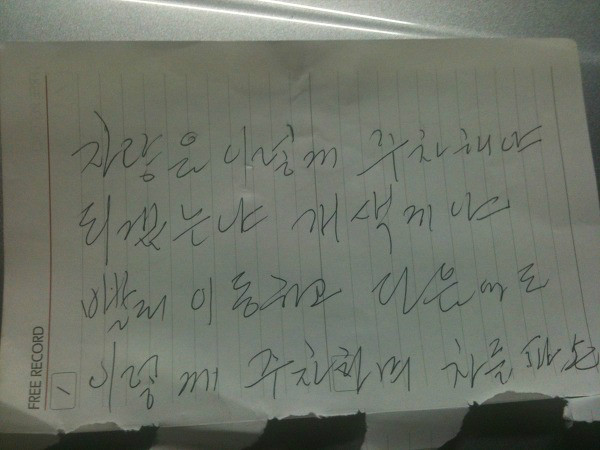 차량을 이렇께 주차해야
되겠는냐 개색끼야
빨리 이동하고 다음에도
이렇께 주차하며 차를 파손
FREE RECORD